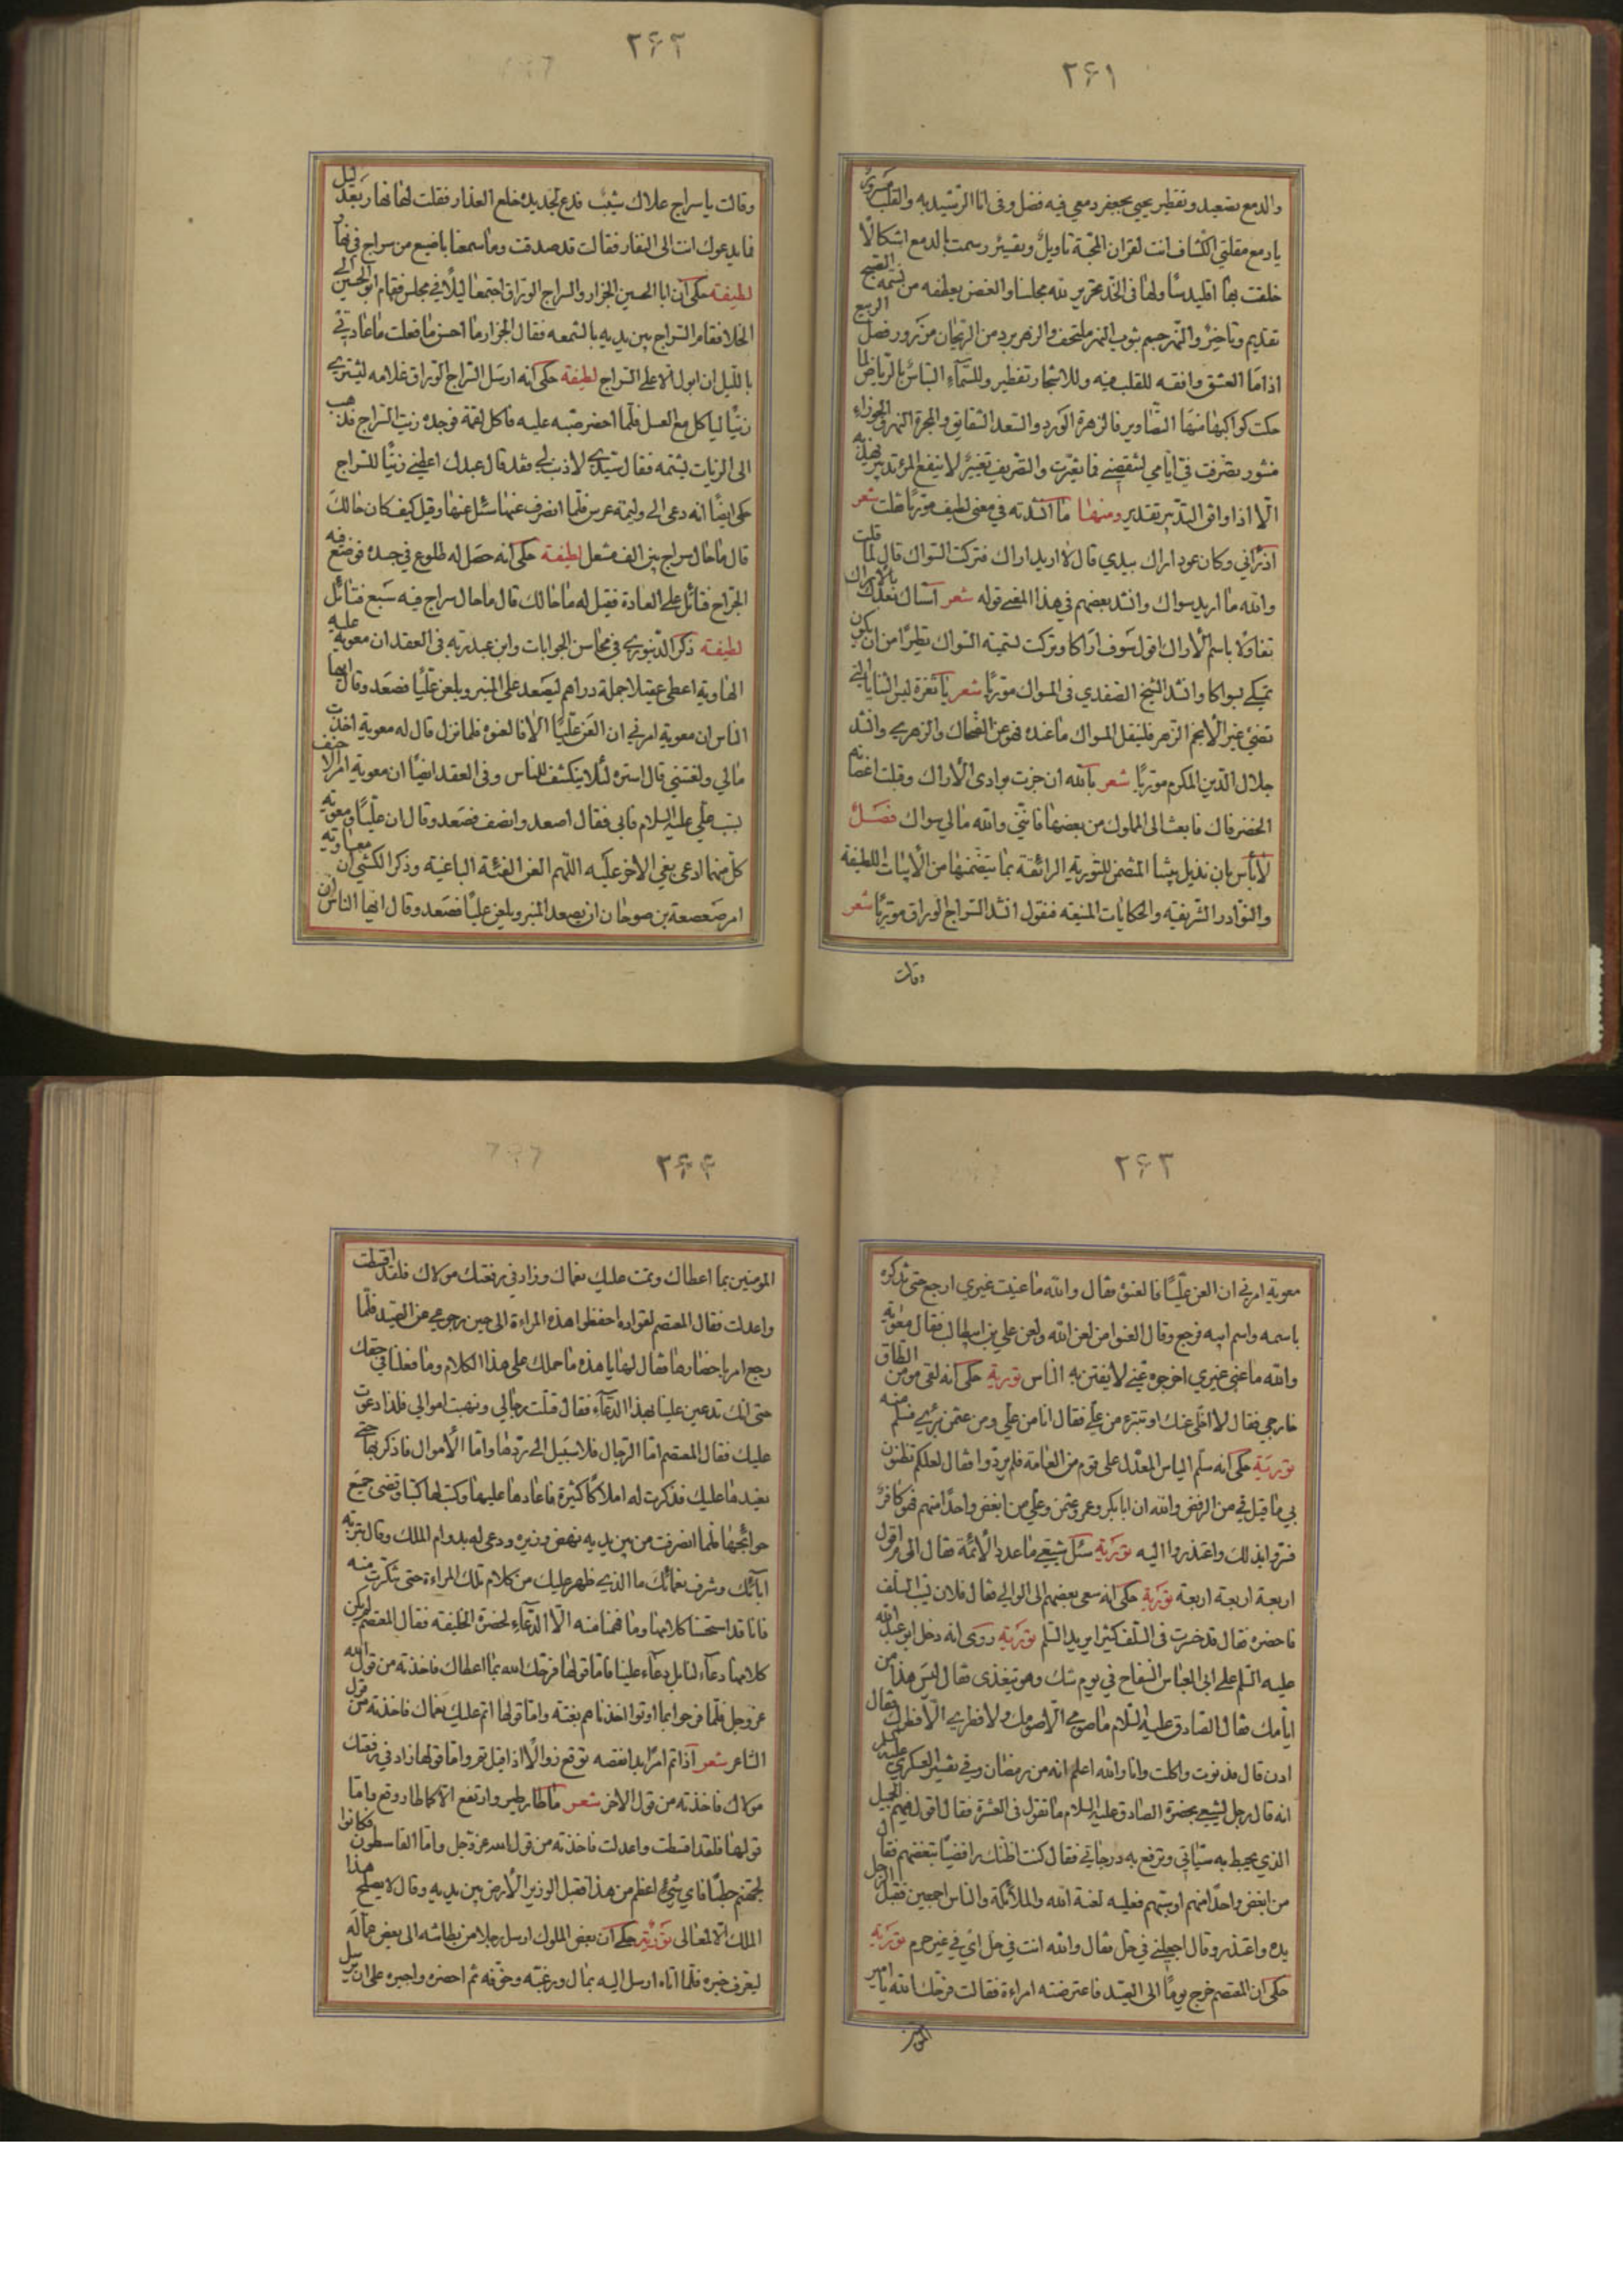 ٢٦١
والدمع تصعيد وتقطير يحيى بجعفر دمعي فيه فضل وفى انا الرشيد به والقلب مسرور
يا دمع مقلتي الكشاف انت لقران المحبة تاويل وتفسير رسمت بالدمع اشكالا
خلقت بها اقليدسًا ولها فى الخد تحرير لله مجلسنا والغصن يعطفه من نسمة الصبح
تقديم وتاخير والنهر جسم بثوب النهر ملتحف والزهر برد من الريحان مزرور فصل الربيع
اذا ما العشق وافقه للقلب فيه وللاشجار تفطير وللسماء التباس بالرياض لما
حكت كواكبها منها التصاوير فالزهرة الورد والسعد الشقايق والمجرة النهر والجوزاء
منثور تصرفت فيّ ايامي لتنقصني فما تغيرت والتصريف تغيير لا ينفع المرء تدبير يهيئه
الا اذا وافق التدبير تقدير ومنها ما انشدته في معنى لطيف مورّيًا فقلت شعر
اذكراني وكان عود اراك بيدي قال لا اريد اراك فتركت السواك قال لما قلت
والله ما اريد سواك وانشد بعضهم في هذا المعنى قوله شعر بالاراك
تفاؤلا باسم الاراك اقول سوف اراكا وتركت تسمية السواك تطيرًا من ان يكون
تمسكي بسواكا وانشد الشيخ الصفدي فى المسواك مورّيًا شعر يا ثغره ليس الثنايا التي
تضئ غير الانجم الزهر فلينقل المسواك ما عنده فهو عن الضحاك والزهري وانشد
جلال الدين المكرم مورّيًا شعر بالله ان جزت بوادى الاراك وقبلت اغصانه
الخضر فاك فابعث الى المملوك من بعضها فانني والله ما لي سواك فصل
لا بأس بان نذيل بيتنا المتضمن للتورية الرائقة بما يتضمنها من الابيات اللطيفة
والنوادر الشريفة والحكايات المنيفة فنقول انشد السراج الوراق مورّيًا شعر
وقالت
٢٦٢
وقالت يا سراج علاك شيب فدع لجديده خلع العذار فقلت لها نهار بعد ليل
فما يدعوك انت الى النفار فقالت قد صدقت وما سمعنا باضيع من سراج في نهار
لطيفة حكى ان ابا الحسين الجزار والسراج الوراق اجتمعا ليلاً في مجلس فقام ابو الحسين الى
الخلا فقام السراج بين يديه بالشمعه فقال الجزار ما احسن ما فعلت ما عادتي
بالليل ان ابول الا على السراج لطيفة حكى انه ارسل السراج الوراق غلامه ليشتري
زيتًا لياكل مع العسل فلما احضر صبه عليه فاكل لقمة فوجده زيت السراج فذهب
الى الزيات يشتمه فقال سيدي لا ذنب لي فقد قال عبدك اعطني زيتًا للسراج
حكى ايضًا انه دعى الى وليمة عرس فلما انصرف عنها سئل عنها وقيل كيف كان حالك
قال ما حال سراج بين الف مشعل لطيفة حكى انه حصل له طلوع في جسده فوضع فيه
الجراح فتائل على العادة فقيل له ما حالك قال ما حال سراج فيه سبع فتائل
لطيفة ذكر الدينوري في محاسن الجوابات وابن عبد ربه فى العقد ان معوية عليه
الهاوية اعطى عقيلا جملة دراهم ليصعد على المنبر ويلعن عليًا فصعد وقال ايها
الناس ان معوية امرني ان العن عليًا الا فالعنوه فلما نزل قال له معوية اخذت
مالي ولعنتني قال استره لئلا ينكشف للناس وفى العقد ايضًا ان معوية امر الاحنف
بسب علي عليه السلام فابى فقال اصعد وانصف فصعد وقال ان عليًا ومعوية
كل منهما ادعى بغي الاخر عليه اللهم العن الفئة الباغية وذكر الكشي ان معاوية
امر صعصعة بن صوحان ان يصعد المنبر ويلعن عليًا فصعد وقال ايها الناس ان
٢٦٣
معوية امرني ان العن عليًا فالعنوه فقال والله ما عنيت غيري ارجع حتى تذكره
باسمه واسم ابيه فرجع وقال العنوا من لعن الله ولعن علي بن ابيطالب فقال معوية
والله ما عنى غيري اخرجوه عني لا يفتتن به الناس تورية حكى انه لقى مومن الطاق
خارجي فقال لا اخلي عنك او تتبرء من علي فقال انا من علي ومن عثمن بريء فسلم منه
تورية حكى انه سلم الياس المعدل على قوم من العامة فلم يردوا فقال لعلكم تظنون
بي ما قيل في من الرفض والله ان ابا بكر وعمر وعثمن وعلي من ابغض واحدًا منهم فهو كافر
فسروا بذلك واعتذروا اليه تورية سئل شيعي ما عدد الائمة فقال الى م اقول
اربعة اربعة اربعة تورية حكى انه سعى بعضهم الى الوالي فقال فلان يسب السلف
فاحضره فقال قد خسرت فى السلف كثيرا يريد السلم تورية روى انه دخل ابو عبد الله
عليه السلم على ابى العباس السفاح في يوم شك وهو يتغذى فقال ليس هذا من
ايامك فقال الصادق عليه السلام ما صومي الا صومك ولا فطري الا فطرك فقال
ادن قال فدنوت واكلت وانا والله اعلم انه من رمضان وفي تفسير العسكري عليه السلم
انه قال رجل لشيعي بحضرة الصادق عليه السلام ما تقول فى العشرة فقال اقول فيهم الجميل
الذي يحبط به سيئاتي وترفع به درجاتي فقال كنت اظنك رافضيًا تبغضهم فقال
من ابغض واحدًا منهم او سبهم فعليه لعنة الله والملائكة والناس اجمعين فقبل الرجل
يده واعتذر وقال اجعلني في حل فقال والله انت في حل اي في غير حرم تورية
حكى ان المعتصم خرج يومًا الى الصيد فاعترضته امراءة فقالت فرحك الله يا امير
المومنين
٢٦٤
المومنين بما اعطاك وتمت عليك نعماك وزاد في رفعتك مولاك فلقد اقسطت
واعدلت فقال المعتصم لقواده احفظوا هذه المراءة الى حين رجوعي عن الصيد فلما
رجع امر باحضارها فقال لها يا هذه ما حملك على هذا الكلام وما فعلنا في حقك
حتى انك تدعين علينا بهذا الدعاء فقالت قتلت رجالي ونهبت اموالي فلذا دعوت
عليك فقال المعتصم اما الرجال فلا سبيل الى ردها واما الاموال فاذكريها حتى
نعيدها عليك فذكرت له املاكًا كثيرة فاعادها عليها وكتب لها كتبا وقضى جميع
حوائجها فلما انصرفت من بين يديه نهض وزيره ودعى له بدوام الملك وقال بتربة
ابائك وشرف نعمائك ما الذي ظهر عليك من كلام تلك المراءة حتى شكرت منه
فانا قد استحسنا كلامها وما فهمنا منه الا الدعاء لحضرة الخليفة فقال المعتصم لم يكن
كلامها دعاء لنا بل دعاء علينا فاما قولها فرحك الله بما اعطاك فاخذته من قول الله
عز وجل فلما فرحوا بما اوتوا اخذناهم بغتة واما قولها اتم عليك نعماك فاخذته من قول
الشاعر شعر اذا تم امر بدا نقصه توقع زوالا اذا قيل تم واما قولها زاد في رفعتك
مولاك فاخذته من قول الاخر شعر ما طار طير وارتفع الا كما طار وقع واما
قولها فلقد اقسطت واعدلت فاخذته من قول الله عز وجل واما القاسطون فكانوا
لجهنم حطبًا فاي شيء اعظم من هذا فقبل الوزير الارض بين يديه وقال لا يصلح هذا
الملك الا لمعالى تورية حكي ان بعض الملوك ارسل رجلا من بطانته الى بعض عماله
ليعرف خبره فلما اتاه ارسل اليه بمال ورغبه وخوفه ثم احضره واجبره على ان يرسل